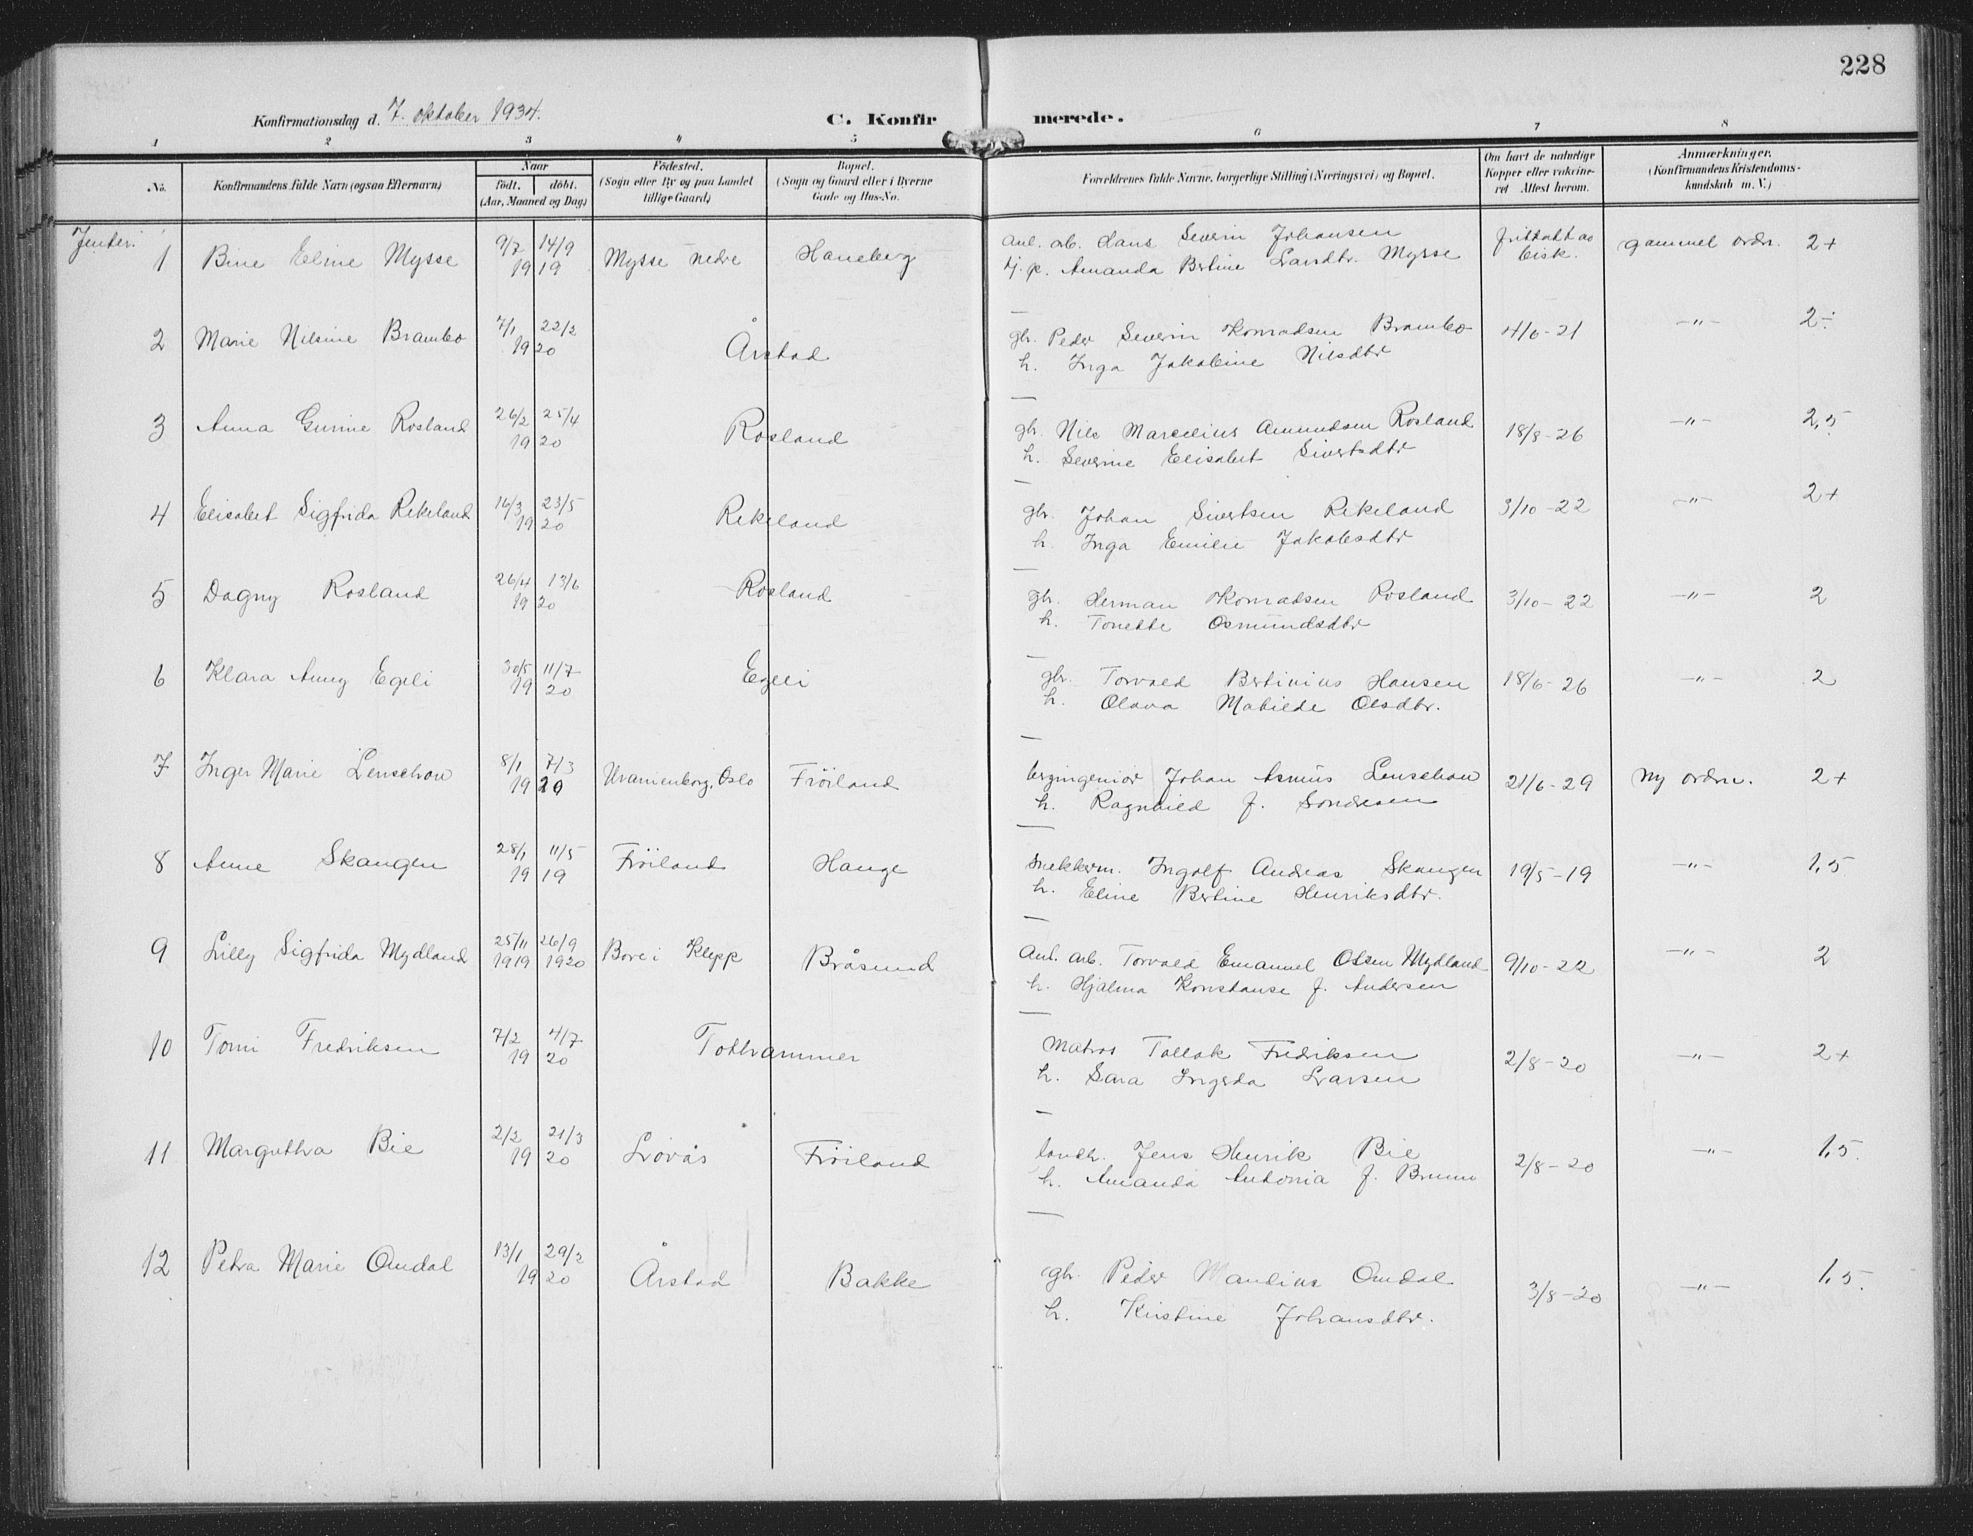 228
Konfirmationsdag d. 7. oktober 1934. C. Konfirmerede.
1 2 3 4 5 6 7 8
No. Konfirmandens fulde Navn (ogsaa Efternavn) Naar født. døbt. (Aar, Maaned og Dag) Fødested. (Sogn eller By og paa Landet tillige Gaard) Bopæl. (Sogn og Gaard eller i Byerne Gade og Hus-No. Forældrenes fulde Navne, borgerlige Stilling (Næringsvei) og Bopæl. Om havt de naturlige Kopper eller vakcineret Attest herom. Anmærkninger. (Konfirmandens Kristendomskundskab m. V.)
Jenter:
1 Bine Eline Mysse 9/7 14/9 1919 Mysse nedre Haneberg Anl. arb. Hans Severin Johansen fritatt av gammel ordn. 2+
tj. p. Amanda Bertine Larsdtr. Mysse bisk.
2 Marie Nilsine Brambo 7/1 22/2 1920 Årstad gbr. Peder Severin Konradsen Brambo 4/6-21 -"- 2÷
h. Inga Jakobine Nilsdtr
3 Anna Gurine Rosland 26/2 25/4 1920 Rosland gbr. Nils Marselius Amundsen Rosland 18/8-26 -"- 2,5
h. Severine Elisabet Sivertsdtr
4 Elisabet Sigfrida Rekeland 16/3 23/5 1920 Rekeland gbr. Johan Sivertsen Rekeland 3/10-22 -"- 2+
h. Inga Emilie Jakobsdtr
5 Dagny Rosland 26/4 13/6 1920 Rosland gbr. Herman Konradsen Rosland 3/10-22 -"- 2
h. Tonette Osmundsdtr
6 Klara Anny Egeli 30/5 11/7 1920 Egeli gbr. Torvald Bertinius Hansen 18/6-26 -"- 2
h. Olava Matilde Olsdtr.
7 Inger Marie Lenschow 8/1 7/3 1920 Uranienborg, Oslo Frøiland bergingeniør Johan Asmus Lenschow 21/6-29 Ny ordn. 2+
h. Ragnhild f. Sondresen
8 Anne Skangen 28/1 11/5 1919 Frøiland Hauge Snekkerm. Ingolf Andreas Skangen 19/5-19 -"- 1,5
h. Eline Bertine Henriksdtr.
9 Lilly Sigfrida Mydland 25/11 1919 26/9 1920 Bore i Klepp Bråsund Anl. arb. Torvald Emanuel Olsen Mydland 9/10-22 -"- 2
h. Hjalma Konstanse f. Andersen
10 Tomi Fredriksen 7/2 4/7 1920 Tothammer Matros Tallak Fredriksen 2/8-20 -"- 2+
h. Sara Ingeda Larsen
11 Margrethra Bie 2/2 21/3 1920 Løvås Frøiland landh. Jens Henrik Bie 2/8-20 -"- 1,5.
h. Amanda Antonia f. Bruun
12 Petra Marie Omdal 13/1 29/2 1920 Årstad Bakke gbr. Peder Maulius Omdal 3/8-20 -"- 1,5.
h. Kristine Johansdtr.